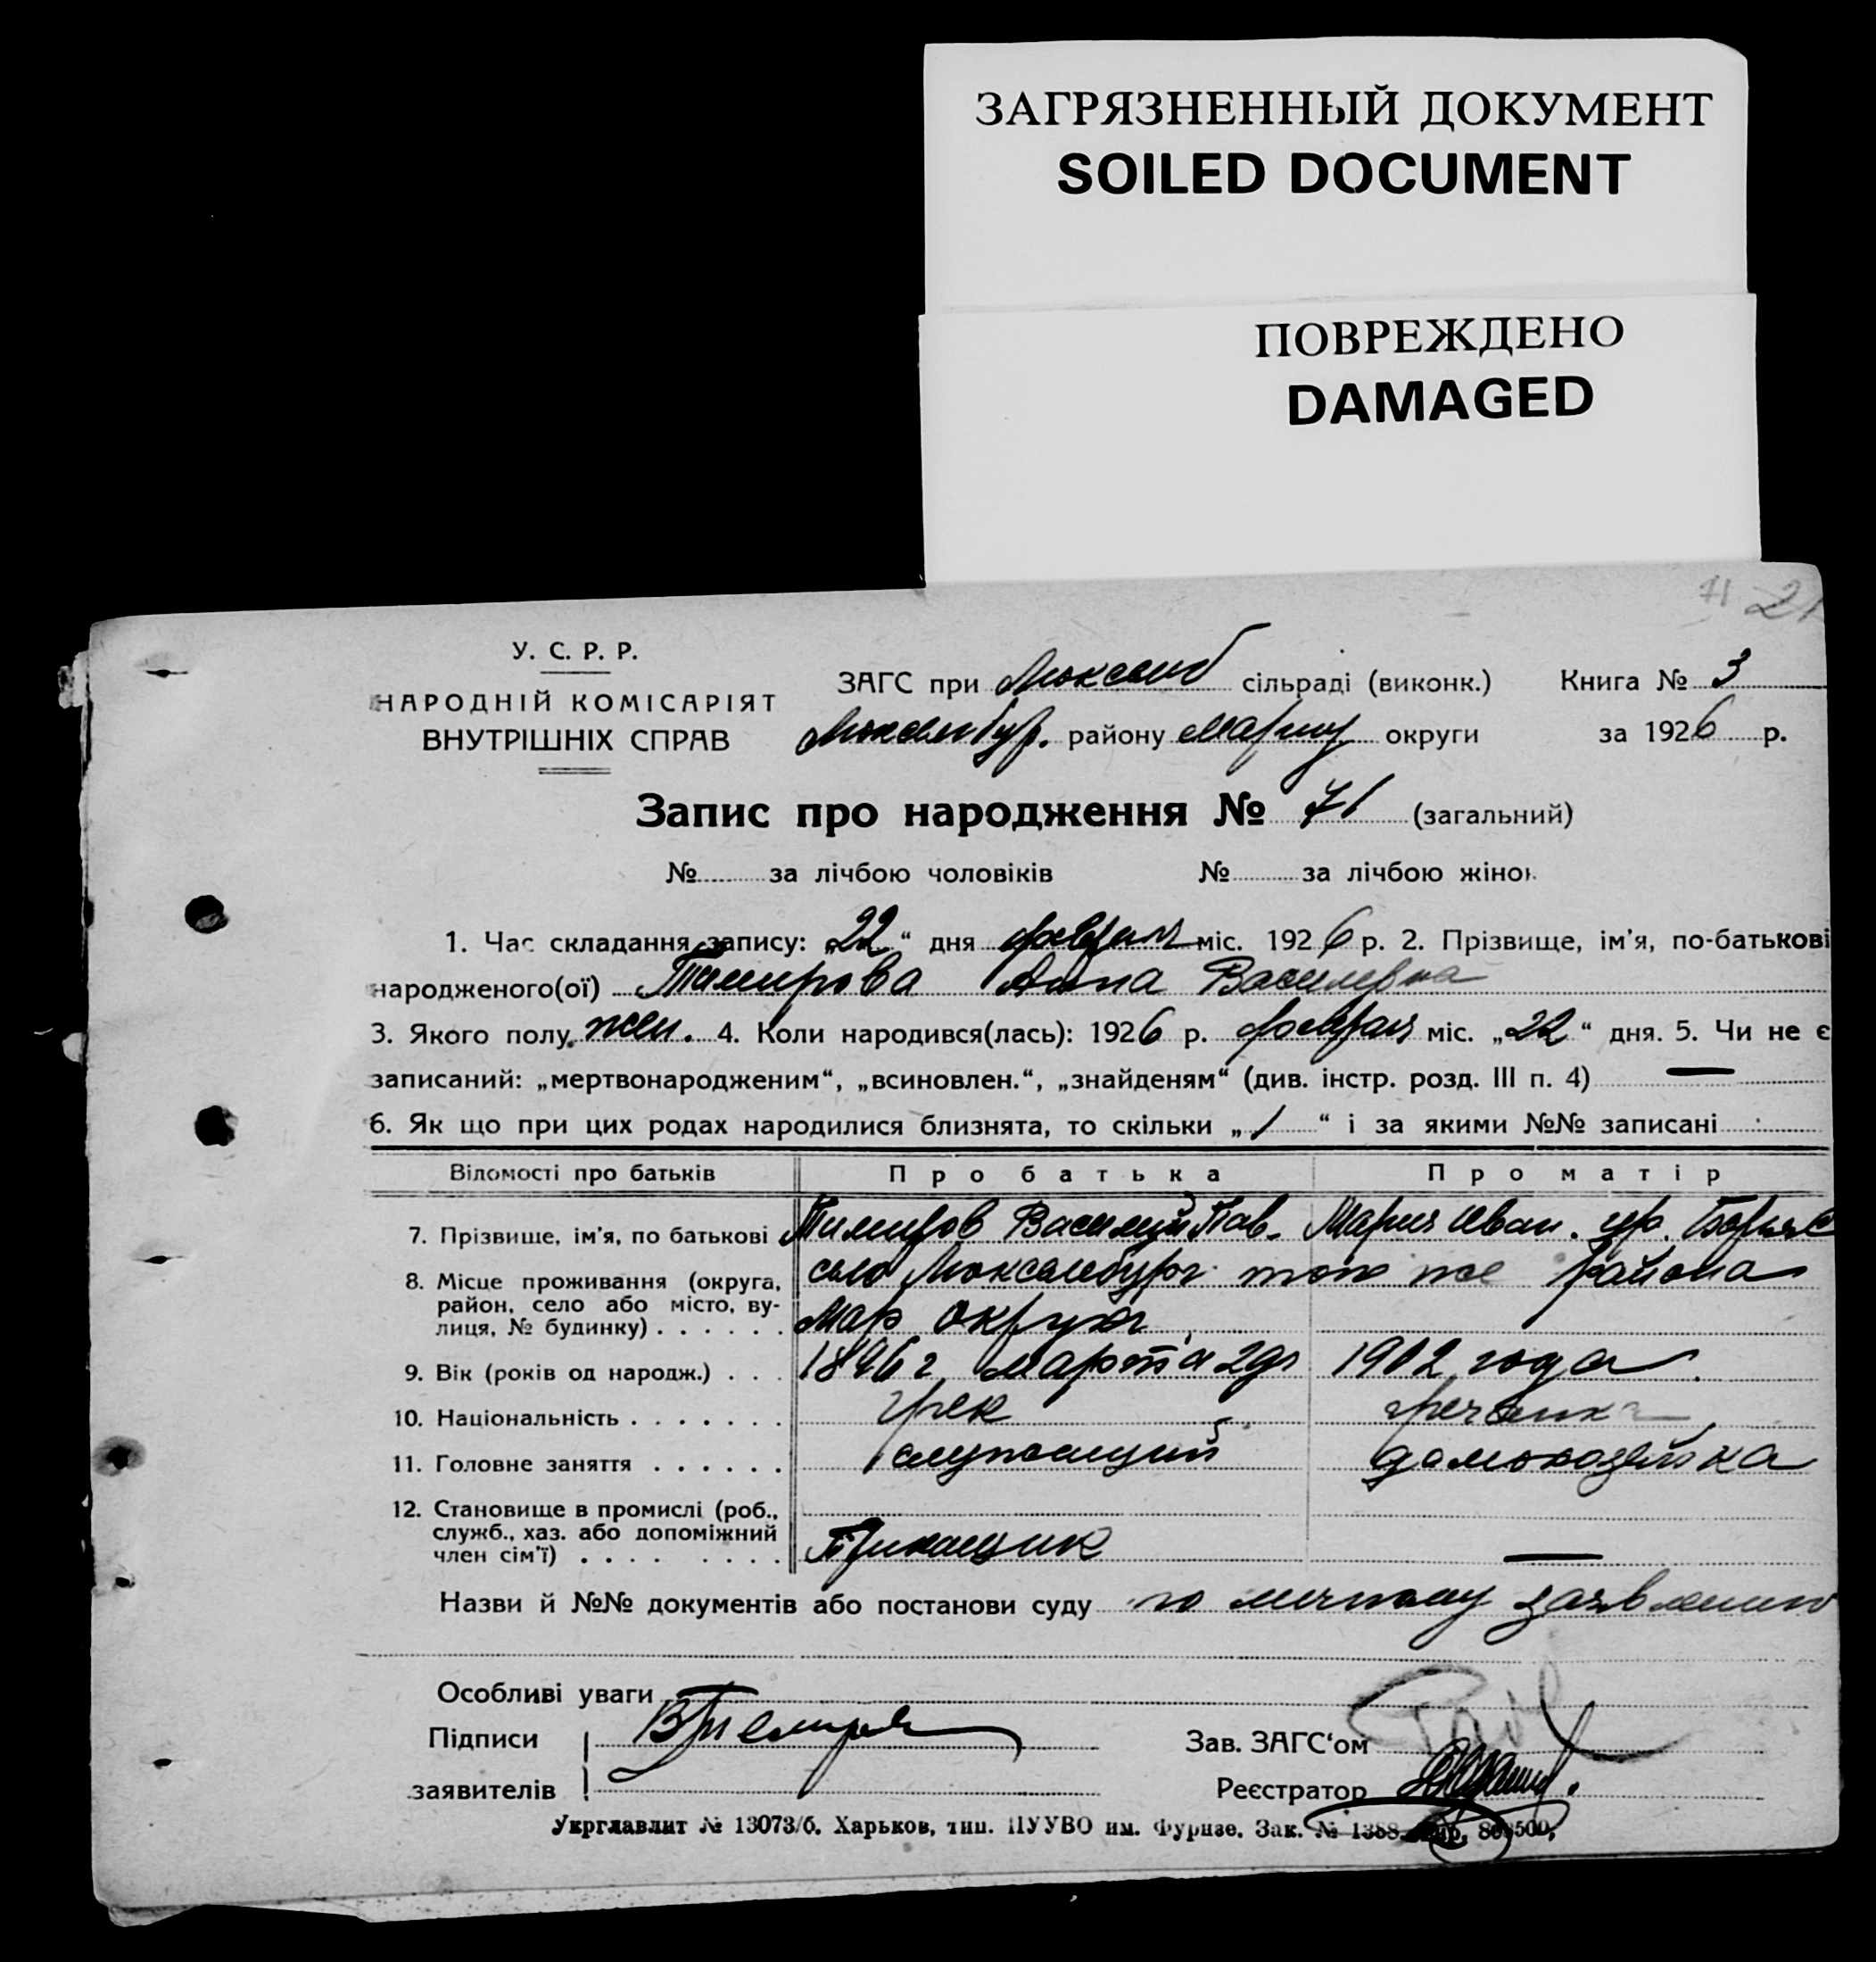 ЗАГРЯЗНЕННЫЙ ДОКУМЕНТ
SOILED DOCUMENT
ПОВРЕЖДЕНО
DAMAGED
71 21
У. С. Р. Р.
НАРОДНІЙ КОМІСАРІЯТ
ВНУТРІШНІХ СПРАВ
ЗАГС при Люксемб сільраді (виконк.) Книга № 3
Люксембур. району Мариу округи за 1926 р.
Запис про народження № 71 (загальний)
№ за лічбою чоловіків № за лічбою жінок
1. Час складання запису: „22“ дня февраля міс. 1926 р. 2. Прізвище, ім'я, по-батькові
народженого(ої) Темирова Анна Василевна
3. Якого полу жен. 4. Коли народився(лась): 1926 р. февраля міс. „22“ дня. 5. Чи не є
записаний: „мертвонародженим“, „всиновлен.“, „знайденям“ (див. інстр. розд. III п. 4) —
6. Як що при цих родах народилися близнята, то скільки „1“ і за якими №№ записані
Відомості про батьків Про батька Про матір
7. Прізвище, ім'я, по батькові Темиров Василий Пав. Мария Иван. ур.
8. Місце проживання (округа, район, село або місто, вулиця, № будинку) село Люксембург того же района
Мар округи
9. Вік (років од народж.) 1896 г марта 29 1902 года
10. Національність грек гречанка
11. Головне заняття служащий домохозяйка
12. Становище в промислі (роб., служб., хаз. або допоміжний член сім'ї) Прикащик —
Назви й №№ документів або постанови суду по личному заявлению
Особливі уваги
Підписи ВТемиров Зав. ЗАГС'ом
заявителів Реєстратор
Укрглавлит № 13073/б. Харьков, тип. ПУУВО им. Фрунзе. Зак. № 1388